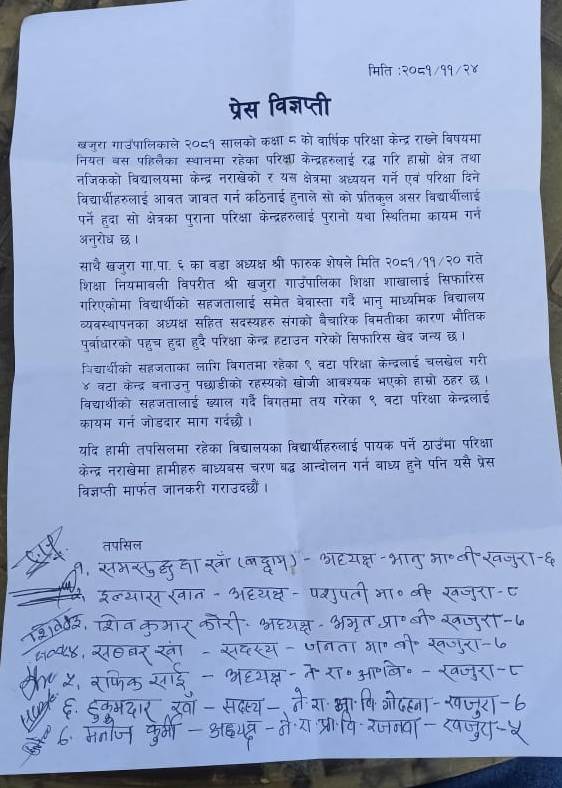 मिति :२०८१/११/२४
प्रेस विज्ञप्ती
खजुरा गाउँपालिकाले २०८१ सालको कक्षा ८ को वार्षिक परिक्षा केन्द्र राख्ने विषयमा
नियत बस पहिलेका स्थानमा रहेका परिक्षा केन्द्रहरुलाई रद्ध गरि हाम्रो क्षेत्र तथा
नजिकको विद्यालयमा केन्द्र नराखेको र यस क्षेत्रमा अध्ययन गर्ने एवं परिक्षा दिने
विद्यार्थीहरुलाई आवत जावत गर्न कठिनाई हुनाले सो को प्रतिकुल असर विद्यार्थीलाई
पर्ने हुदा सो क्षेत्रका पुराना परिक्षा केन्द्रहरुलाई पुरानो यथा स्थितिमा कायम गर्न
अनुरोध छ ।
साथै खजुरा गा.पा. ६ का वडा अध्यक्ष श्री फारुक शेषले मिति २०८१/११/२० गते
शिक्षा नियमावली विपरीत श्री खजुरा गाउँपालिका शिक्षा शाखालाई सिफारिस
गरिएकोमा विद्यार्थीको सहजतालाई समेत बेवास्ता गर्दै भानु माध्यमिक विद्यालय
व्यवस्थापनका अध्यक्ष सहित सदस्यहरु संगको बैचारिक विमतीका कारण भौतिक
पुर्वाधारको पहुच हुदा हुदै परिक्षा केन्द्र हटाउन गरेको सिफारिस खेद जन्य छ ।
विद्यार्थीको सहजताका लागि विगतमा रहेका ९ वटा परिक्षा केन्द्रलाई चलखेल गरी
४ वटा केन्द्र बनाउनु पछाडीको रहस्यको खोजी आवश्यक भएको हाम्रो ठहर छ ।
विद्यार्थीको सहजतालाई ख्याल गर्दै विगतमा तय गरेका ९ वटा परिक्षा केन्द्रलाई
कायम गर्न जोडदार माग गर्दछौ ।
यदि हामी तपसिलमा रहेका विद्यालयका विद्यार्थीहरुलाई पायक पर्ने ठाउँमा परिक्षा
केन्द्र नराखेमा हामीहरु बाध्यबस चरण बद्ध आन्दोलन गर्न बाध्य हुने पनि यसै प्रेस
विज्ञप्ती मार्फत जानकरी गराउदछौं ।
तपसिल
१. खाँ - अध्यक्ष - भानु मा॰ वी॰ खजुरा - ६
इल्यास खान - अध्यक्ष - पशुपती मा॰ वी॰ खजुरा - ८
३. शिव कुमार कोरी - अध्यक्ष - अमृत प्रा॰ वी॰ खजुरा - ७
४. खाँ - सदस्य - जनता मा॰ वी॰ खजुरा - ७
५. रफिक साई - अध्यक्ष - ने॰ रा॰ आ॰ वि॰ - खजुरा - ८
६. हुकुमदार खाँ - सदस्य - ने. रा. प्रा. वि. गोदहना - खजुरा - ७
७. मनोज कुर्मी - अध्यक्ष - ने. रा. प्रा. वि. रजनवा - खजुरा - ५